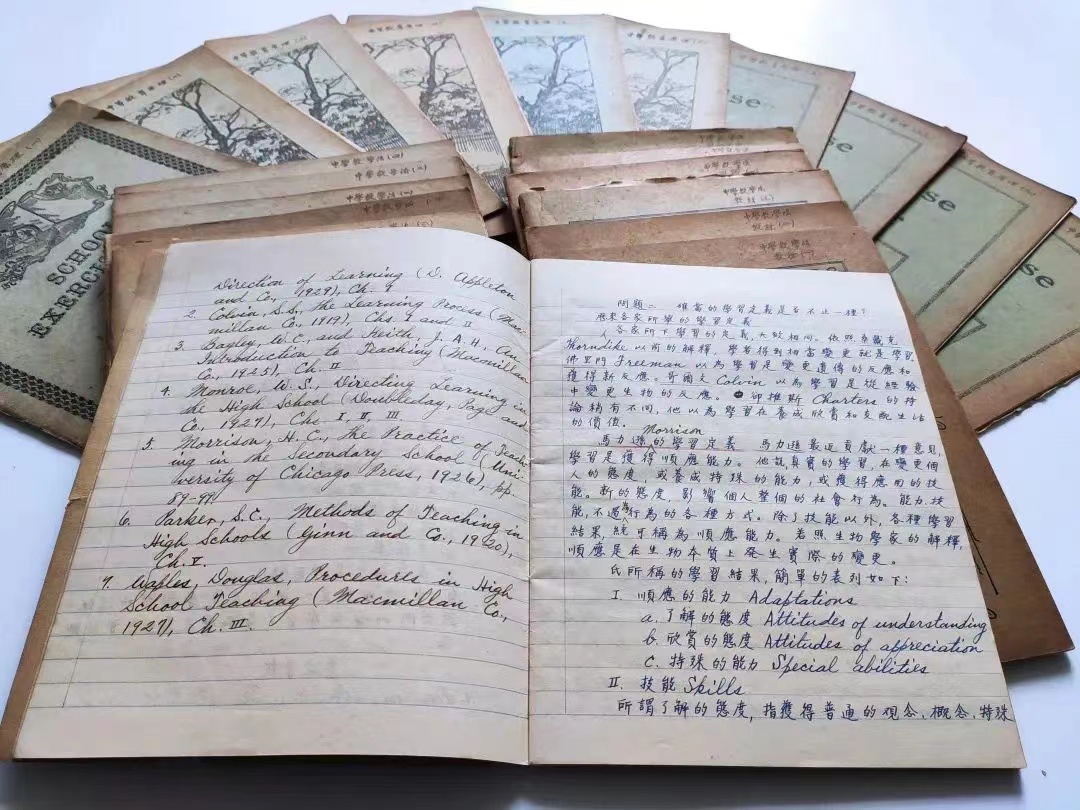 中等教育原理(一)
SCHOOL
EXERCISE
中學教學法(四)
中學教學法(三)
中學教學法(二)
中學教學法(一)
中學教學法
中學教學法
教材(二)
中學教學法
教材(一)
Direction of Learning (D. Appleton
and Co., 1929), Ch. 9
2. Colvin, S.S., The Learning Process (Mac-
millan Co., 1919), Chs I and II
3. Bagley, W.C., and Keith, J.A.H., An
Introduction to Teaching (Macmillan
Co., 1925), Ch. II
4. Monroe, W.S., Directing Learning in
the High School (Doubleday, Page and
Co., 1927), Chs I, II, III
5. Morrison, H.C., The Practice of Teach-
ing in the Secondary School (Uni-
versity of Chicago Press, 1926), pp.
89-99
6. Parker, S.C., Methods of Teaching in
High Schools (Ginn and Co., 1920),
Ch. V.
7. Waples, Douglas, Procedures in High
School Teaching (Macmillan Co.,
1927), Ch. III.
問題二 確當的學習定義是否不止一種?
歷來各家所舉的學習定義
各家所下學習的定義,大致相同。依照桑戴克
Thorndike 以前的解釋,學者得到相當變更就是學習,
佛里門 Freeman 以為學習是變更遺傳的反應和
獲得新反應。哥爾文 Colvin 以為學習是從經驗
中變更生物的反應。卻推斯 Charters 的持
論稍有不同,他以為學習在養成欣賞和支配生活
的價值。
Morrison
馬力遜的學習定義 馬力遜最近貢獻一種意見,
學習是獲得順應能力。他說真實的學習,在變更個
人的態度,或養成特殊的能力,或獲得應用的技
能。新的態度,影響個人整個的社會行為。能力技
能,不過為行為的各種方式。除了技能以外,各種學習
結果,統可稱為順應能力。若照生物學家的解釋,
順應是在生物本質上發生實際的變更。
氏所稱的學習結果,簡單的表列如下:
I 順應的能力 Adaptations
a. 了解的態度 Attitudes of understanding
b. 欣賞的態度 Attitudes of appreciation
c. 特殊的能力 Special abilities
II. 技能 Skills
所謂了解的態度,指獲得普通的观念、概念、特殊